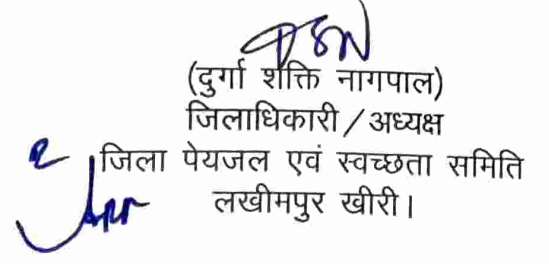 (दुर्गा शक्ति नागपाल)
जिलाधिकारी / अध्यक्ष
जिला पेयजल एवं स्वच्छता समिति
लखीमपुर खीरी।